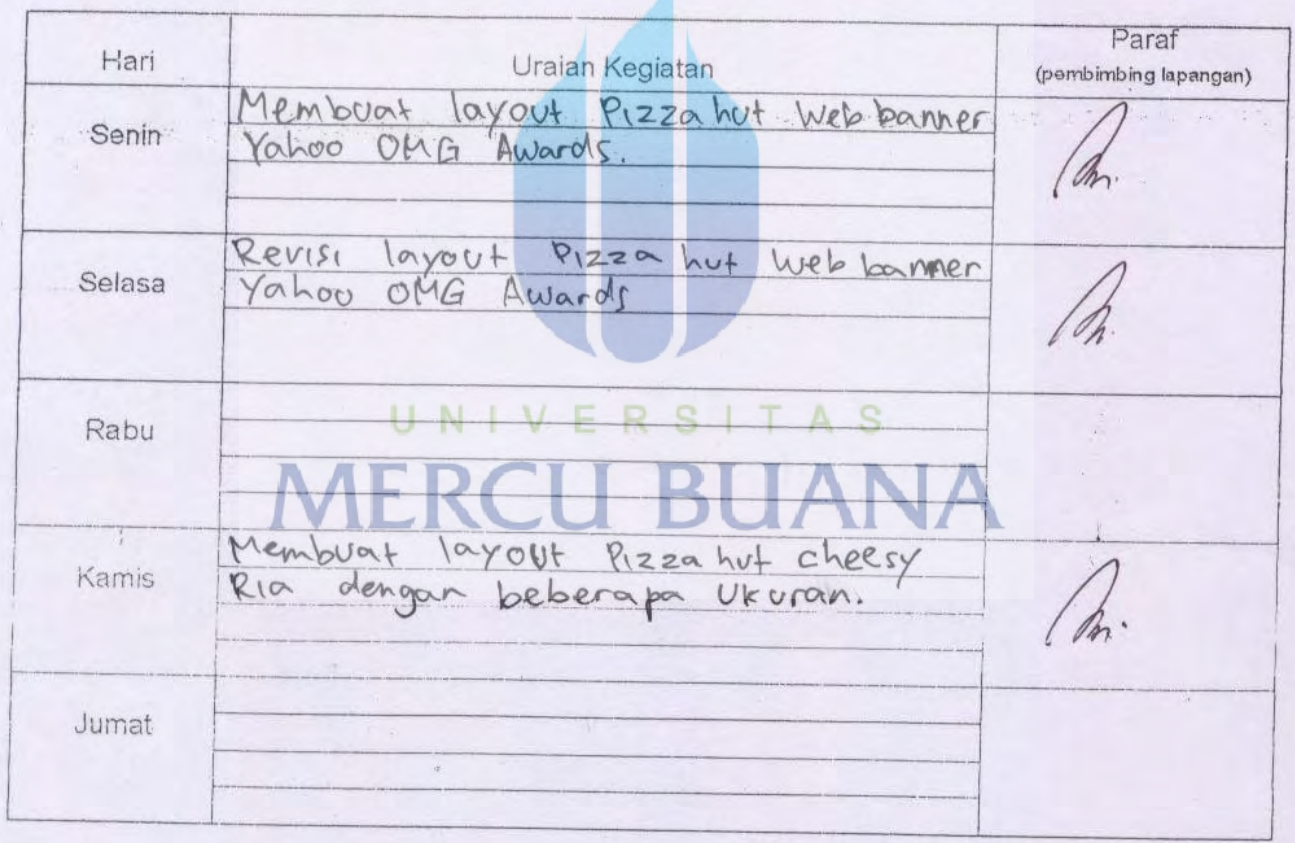 Hari Uraian Kegiatan Paraf
(pembimbing lapangan)
Senin
Membuat layout Pizza hut Web banner
Yahoo OMG Awards.
Selasa
Revisi layout Pizza hut web banner
Yahoo OMG Awards
Rabu
UNIVERSITAS
MERCU BUANA
Kamis
Membuat layout Pizza hut cheesy
Ria dengan beberapa Ukuran.
Jumat